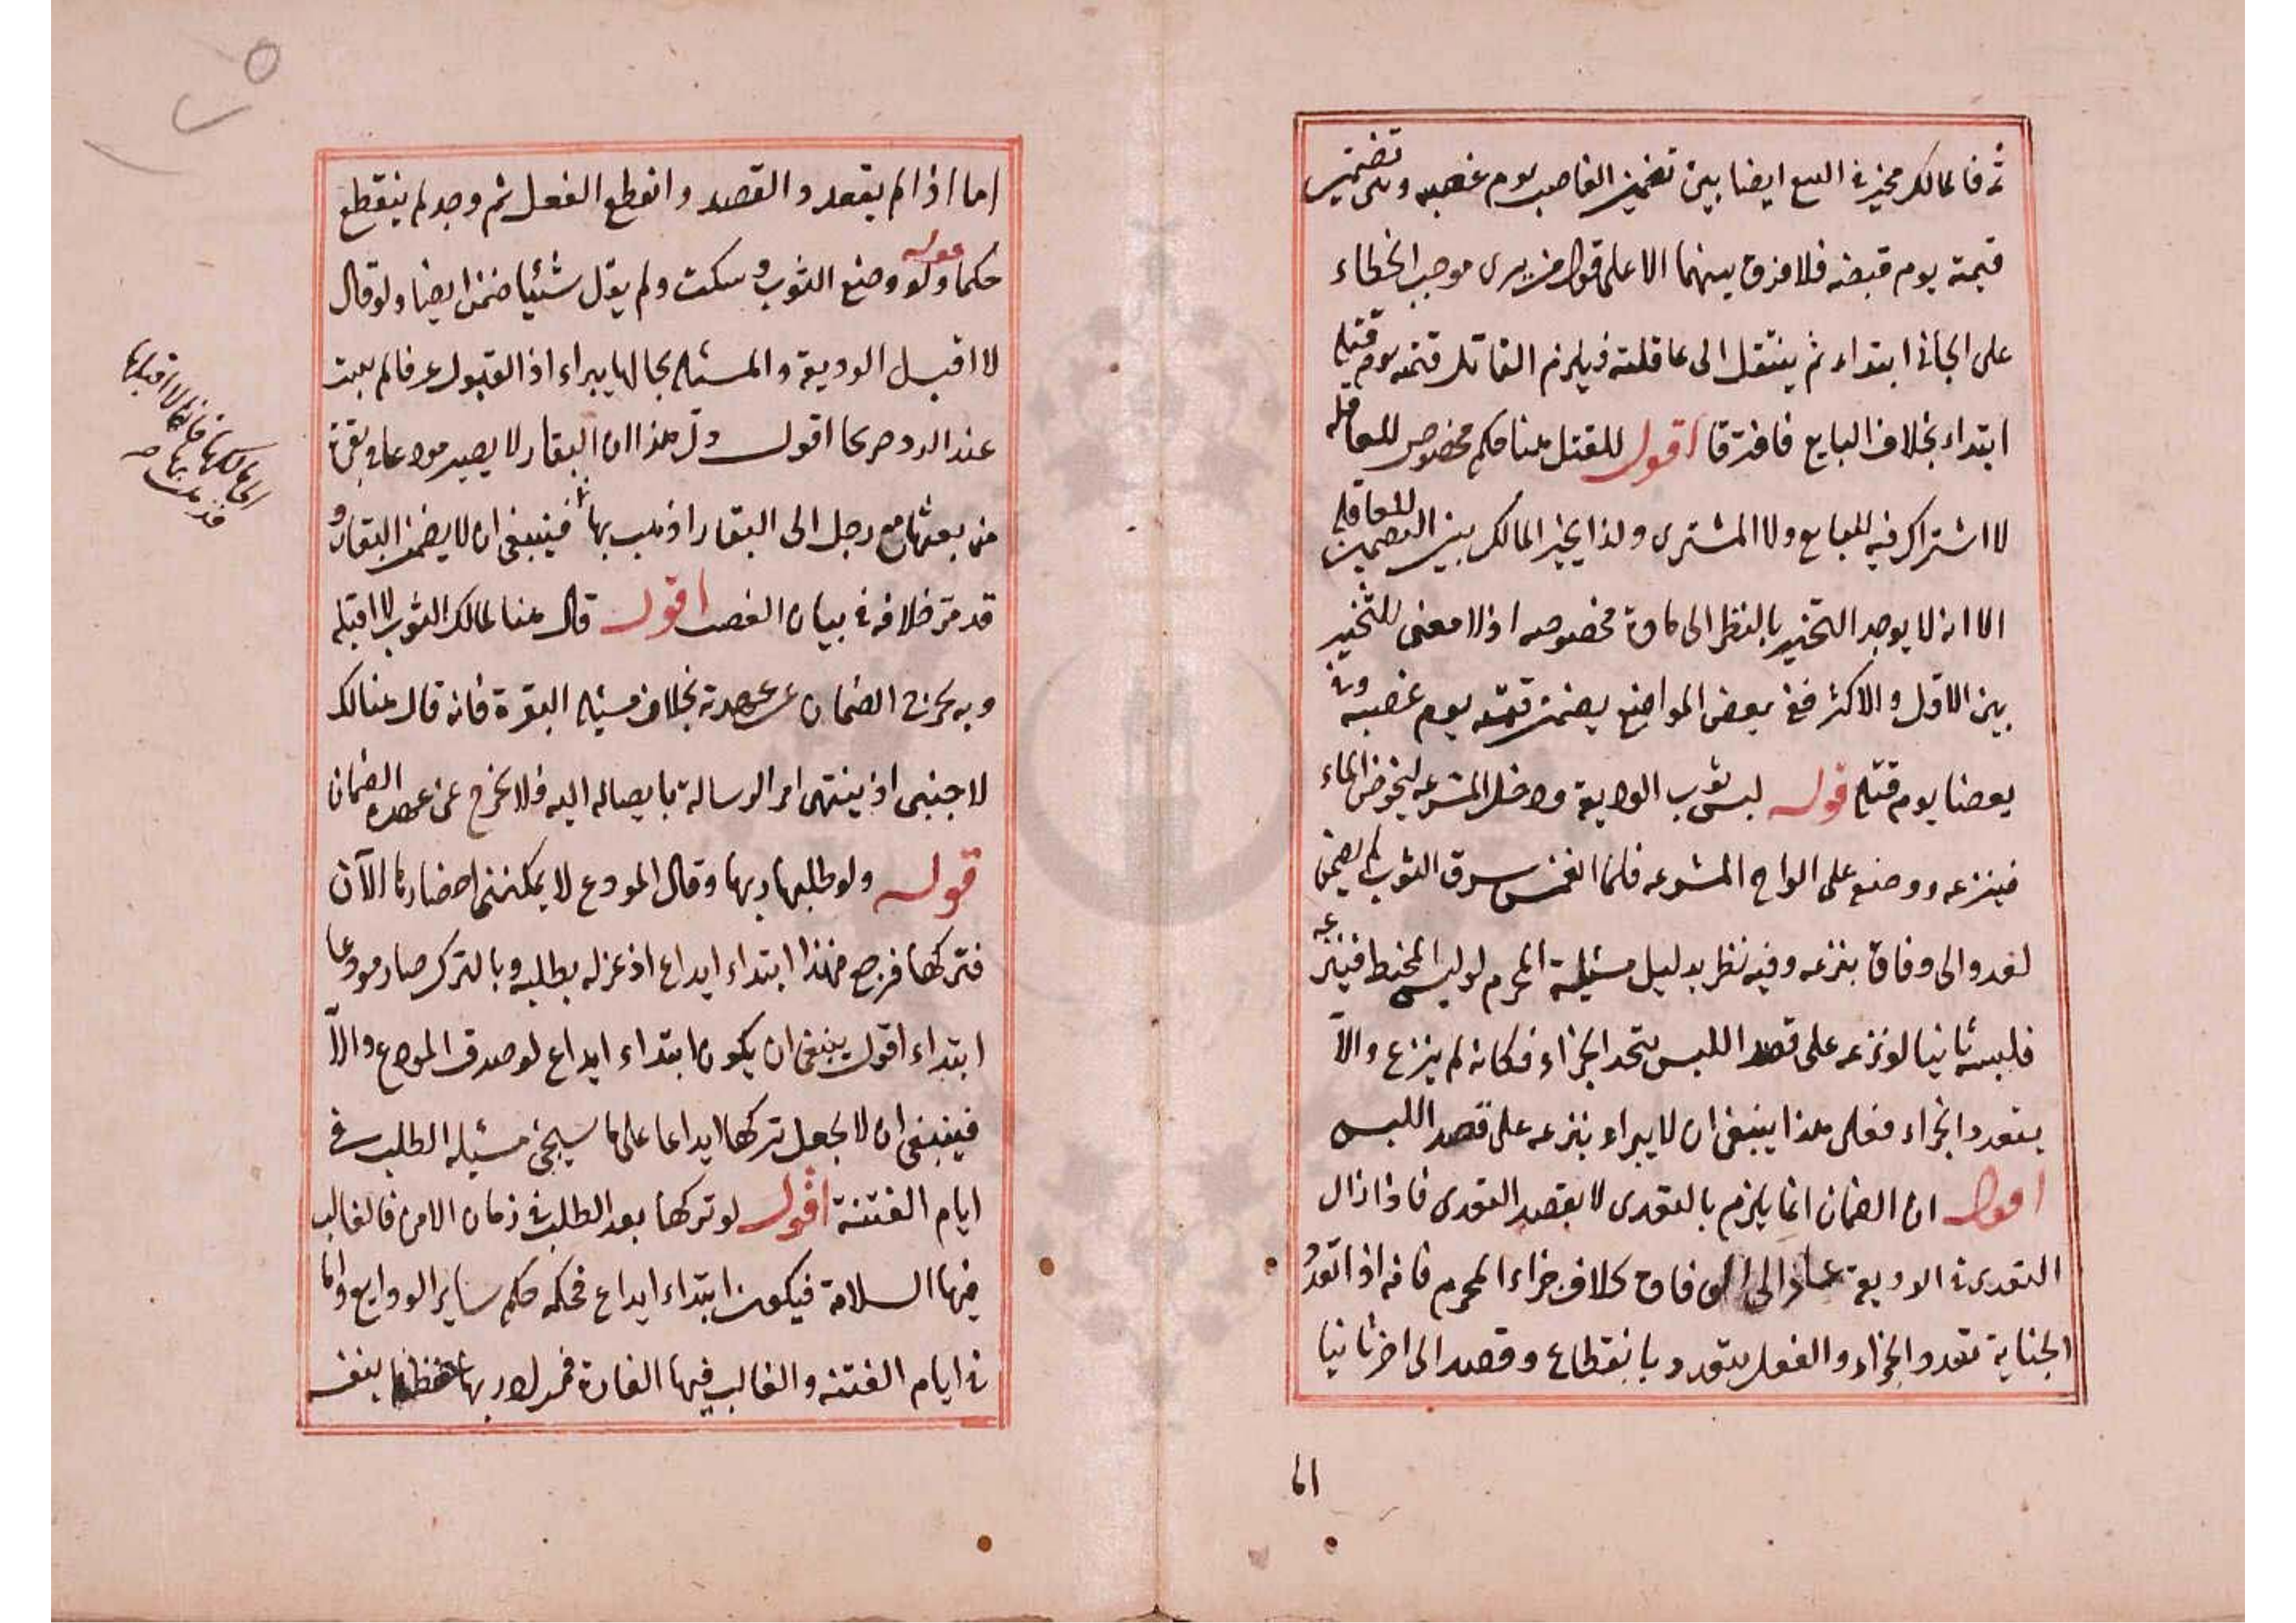 ثمه فالمالك مخير في البيع ايضا بين تضمين الغاصب يوم غصبه وبين تضمين
قيمته يوم قبضه فلا فرق بينهما الا على قول من يرى موجب الخطاء
على الجاني ابتداء ثم ينتقل الى عاقلته فيلزم القاتل قيمته يوم قتله
ابتداء بخلاف البايع فافترقا اقول للقتل هنا حكم مخصوص للعاقله
لا اشتراك فيه للبايع ولا المشترى ولذا يخير المالك بين التضمين للعاقله
الا انه لا يوجد التخيير بالنظر الى مادة مخصوصه اذ لا معنى للتخيير
بين الاقل والاكثر ففي بعض المواضع يضمن قيمته يوم غصبه وفي
بعضنا يوم قتله قوله لبس ثوب الوديعة ودخل المشرعه ليخوض الماء
فينزعه ووضع على الواح المشرعه فلما انغمس سرق الثوب لم يضمن
لعوده الى وفاق بنزعه وفيه نظر بدليل مسئلة المحرم لو لبس المخيط فينزعه
فلبسه ثانيا لو نزعه على قصد اللبس يتحد الجزاء فكانه لم ينزع والا
يتعدد الجزاء فعلى هذا ينبغى ان لا يبراء بنزعه على قصد اللبس
اقول ان الضمان انما يلزم بالتعدى لا بقصد التعدى فاذا زال
التعدى في الوديعة عاد الى الوفاق بخلاف جزاء المحرم فانه اذا تعدد
الجناية تعدد الجزاء والفعل يتعدد بانقطاع وقصد الى اخر ثانيا
اما
اما اذا لم يتعدد القصد وانقطع الفعل ثم وجد لم ينقطع
حكما قوله ولو وضع الثوب وسكت ولم يقل شئيا ضمن ايضا ولو قال
لا اقبل الوديعة والمسئله بحالها يبراء اذ القبول عرفا لم يثبت
عند الرد صريحا اقول دل هذا ان البقار لا يصير مودعا في بقرة
من بعثها مع رجل الى البقار اذهب بها فينبغى ان لا يضمن البقار و
الى مالكها فانى لا اقبلها
فذهب بها صح
قد مر خلافه في بيان الغصب اقول قال هنا لمالك الثوب لا اقبله
وبه يخرج الضمان عن عهدته بخلاف مسئله البقرة فانه قال هنالك
لاجنبى اذ ينتهى امر الرسالة بايصاله اليه فلا يخرج عن عهده الضمان
قوله ولو طلبها ربها وقال المودع لا يمكننى احضارها الآن
فتركها فرجع فهذا ابتداء ايداع اذ عزله بطلبه وبالترك صار مودعا
ابتداء اقول ينبغى ان يكون ابتداء ايداع لو صدق المودع والا
فينبغى ان لا يجعل تركها ايداعا على ما سيجئ مسئله الطلب في
ايام الفتنة اقول لو تركها بعد الطلب في زمان الامن فالغالب
فيها السلامة فيكون ابتداء ايداع فحكمه حكم ساير الودايع واما
في ايام الفتنه والغالب فيها الغارة فمراد ربها حفظها بنفسه